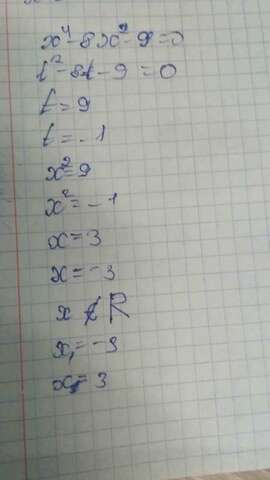 x⁴-8x²-9=0
t²-8t-9=0
t=9
t=-1
x²=9
x²=-1
x=3
x=-3
x∉R
x₁=-3
x₂=3